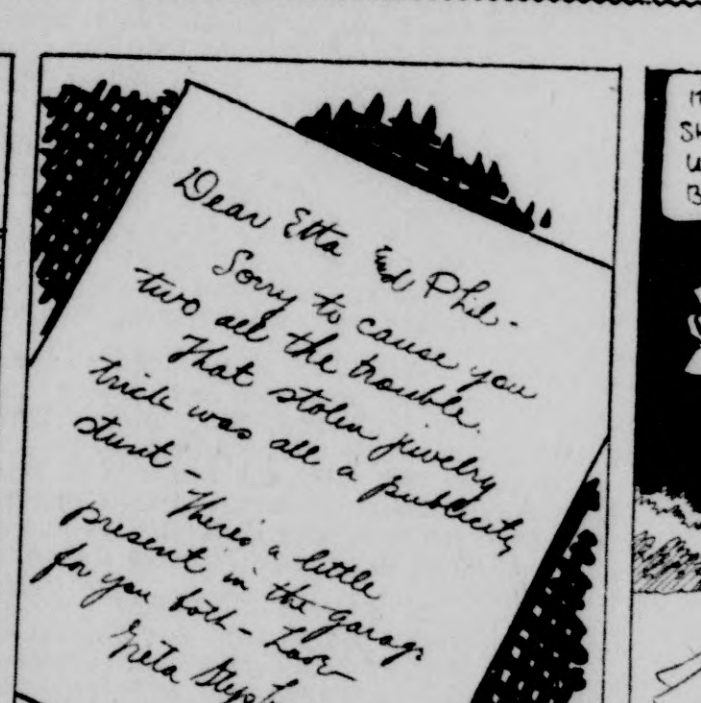 Dear Etta and Phil-
Sorry to cause you
two all the trouble.
That stolen jewelry
trick was all a publicity
stunt -
There's a little
present in the garage
for you both - Love
Greta